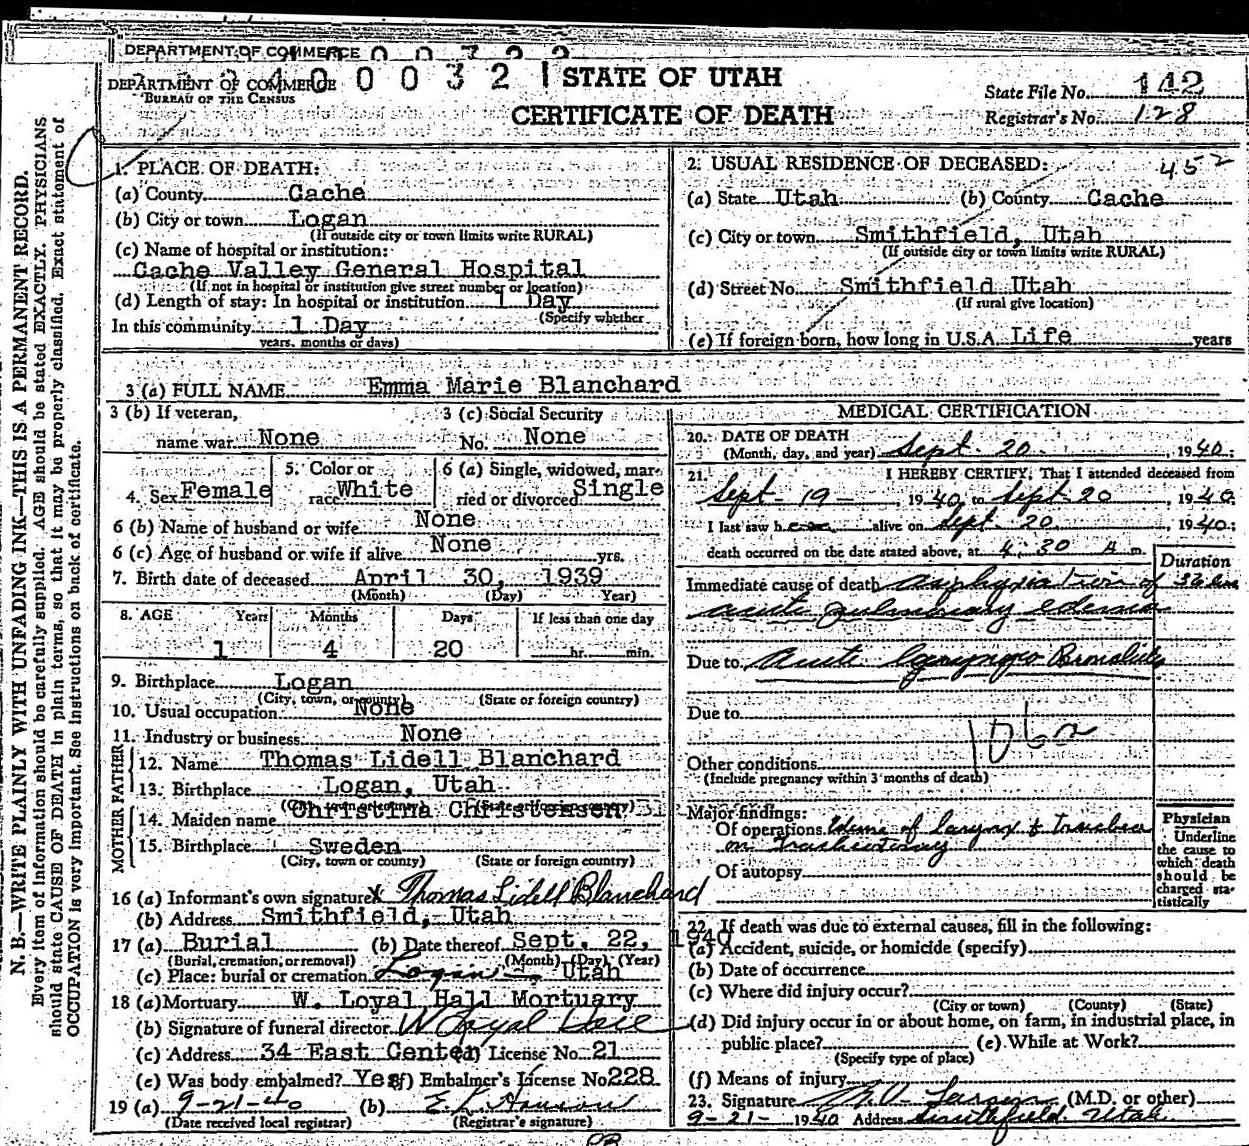 DEPARTMENT OF COMMERCE
DEPARTMENT OF COMMERCE
BUREAU OF THE CENSUS
4 0 0 0 3 2 1
STATE OF UTAH
CERTIFICATE OF DEATH
State File No. 142
Registrar's No. 128
N. B.—WRITE PLAINLY WITH UNFADING INK—THIS IS A PERMANENT RECORD.
Every item of information should be carefully supplied. AGE should be stated EXACTLY. PHYSICIANS
should state CAUSE OF DEATH in plain terms, so that it may be properly classified. Exact statement of
OCCUPATION is very important. See instructions on back of certificate.
1. PLACE OF DEATH:
(a) County Cache
(b) City or town Logan
(If outside city or town limits write RURAL)
(c) Name of hospital or institution:
Cache Valley General Hospital
(If not in hospital or institution give street number or location)
(d) Length of stay: In hospital or institution 1 Day
(Specify whether
In this community 1 Day
years, months or days)
2. USUAL RESIDENCE OF DECEASED: 452
(a) State Utah (b) County Cache
(c) City or town Smithfield, Utah
(If outside city or town limits write RURAL)
(d) Street No. Smithfield Utah
(If rural give location)
(e) If foreign born, how long in U.S.A. Life years
3 (a) FULL NAME Emma Marie Blanchard
3 (b) If veteran,
name war None
3 (c) Social Security
No. None
4. Sex Female
5. Color or
race White
6 (a) Single, widowed, mar-
ried or divorced Single
6 (b) Name of husband or wife None
6 (c) Age of husband or wife if alive None yrs.
7. Birth date of deceased April 30, 1939
(Month) (Day) (Year)
8. AGE Years Months Days If less than one day
1 4 20 hr. min.
9. Birthplace Logan
(City, town, or county) (State or foreign country)
10. Usual occupation None
11. Industry or business None
FATHER
12. Name Thomas Lidell Blanchard
13. Birthplace Logan, Utah
(City, town or county) (State or foreign country)
MOTHER
14. Maiden name Christina Christensen
15. Birthplace Sweden
(City, town or county) (State or foreign country)
16 (a) Informant's own signature X Thomas Lidell Blanchard
(b) Address Smithfield, Utah
17 (a) Burial (b) Date thereof Sept. 22, 1940
(Burial, cremation, or removal) (Month) (Day) (Year)
(c) Place: burial or cremation Logan — Utah
18 (a) Mortuary W. Loyal Hall Mortuary
(b) Signature of funeral director W Loyal Hall
(c) Address 34 East Center (d) License No. 21
(e) Was body embalmed? Yes (f) Embalmer's License No 228
19 (a) 9-21-40 (b)
(Date received local registrar) (Registrar's signature)
MEDICAL CERTIFICATION
20. DATE OF DEATH
(Month, day, and year) Sept. 20 1940;
21. I HEREBY CERTIFY, That I attended deceased from
Sept 19 - 1940, to Sept 20, 1940;
I last saw her alive on Sept. 20, 1940;
death occurred on the date stated above, at 4:30 A m.
Duration
Immediate cause of death Asphyxiation of 36 hrs
acute pulmonary edema
Due to Acute laryngo Bronchitis
Due to
106a
Other conditions
(Include pregnancy within 3 months of death)
Major findings:
Of operations Edema of larynx & trachea
on tracheotomy
Of autopsy
Physician
Underline
the cause to
which death
should be
charged sta-
tistically
22. If death was due to external causes, fill in the following:
(a) Accident, suicide, or homicide (specify)
(b) Date of occurrence
(c) Where did injury occur?
(City or town) (County) (State)
(d) Did injury occur in or about home, on farm, in industrial place, in
public place? (e) While at Work?
(Specify type of place)
(f) Means of injury
23. Signature Larsen (M.D. or other)
9-21- 1940 Address Smithfield Utah